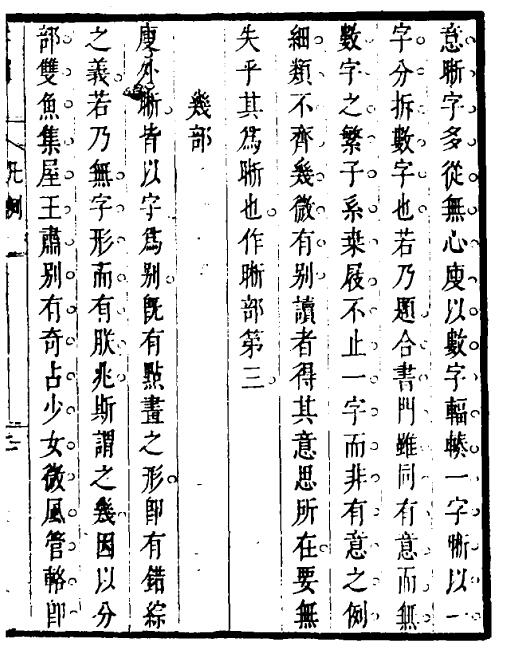 意晰字多從無心廋以數字輻輳一字晰以一
字分拆數字也若乃題合書門雖同有意而無
數字之繁子系桒屐不止一字而非有意之例
細類不齊幾微有别讀者得其意思所在要無
失乎其爲晰也作晰部第三
幾部
廋外晰皆以字爲别既有點畫之形卽有錯綜
之義若乃無字形而有朕兆斯謂之幾因以分
部雙魚集屋王肅别有奇占少女微風管輅卽
凡例